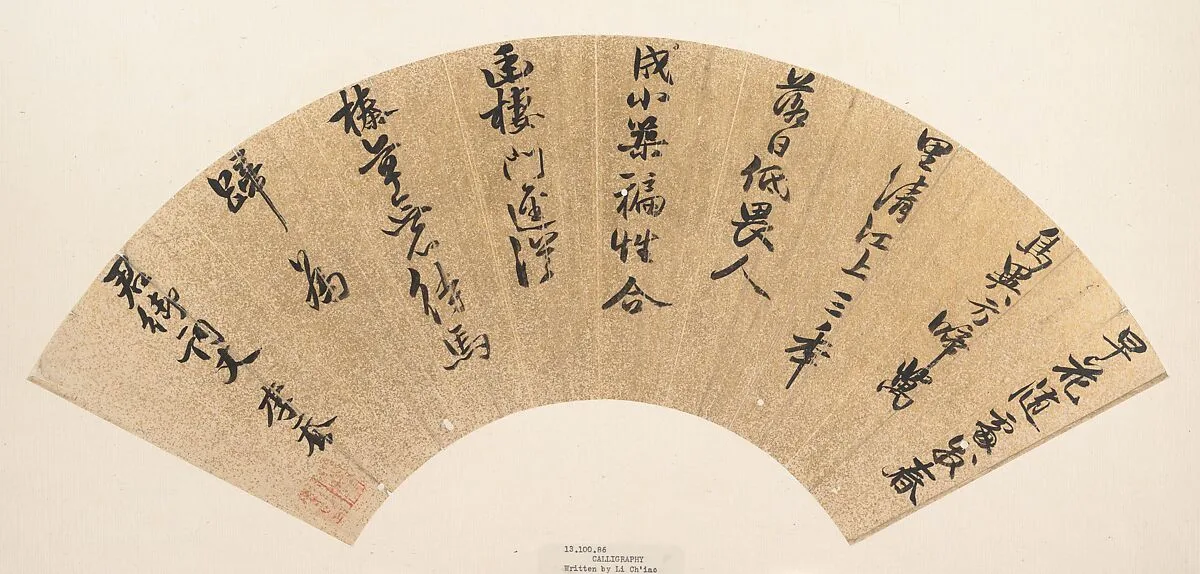 早花隨處發春
鳥異方啼萬
里清江上三年
落日低畏人
成小築褊性合
幽棲門逕從
榛草無心待馬
蹄 為
君御詞丈 李喬
13.100.86
CALLIGRAPHY
Written by Li Ch'iao